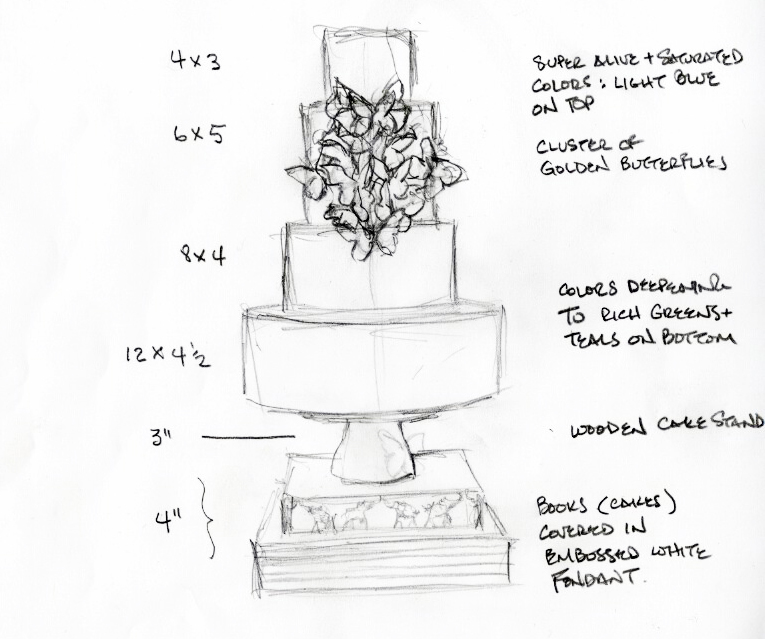 4 x 3
SUPER ALIVE + SATURATED
COLORS: LIGHT BLUE
ON TOP
6 x 5
CLUSTER OF
GOLDEN BUTTERFLIES
8 x 4
COLORS DEEPENING
TO RICH GREENS +
TEALS ON BOTTOM
12 x 4 1/2
3"
WOODEN CAKE STAND
4"
BOOKS (CAKES)
COVERED IN
EMBOSSED WHITE
FONDANT.